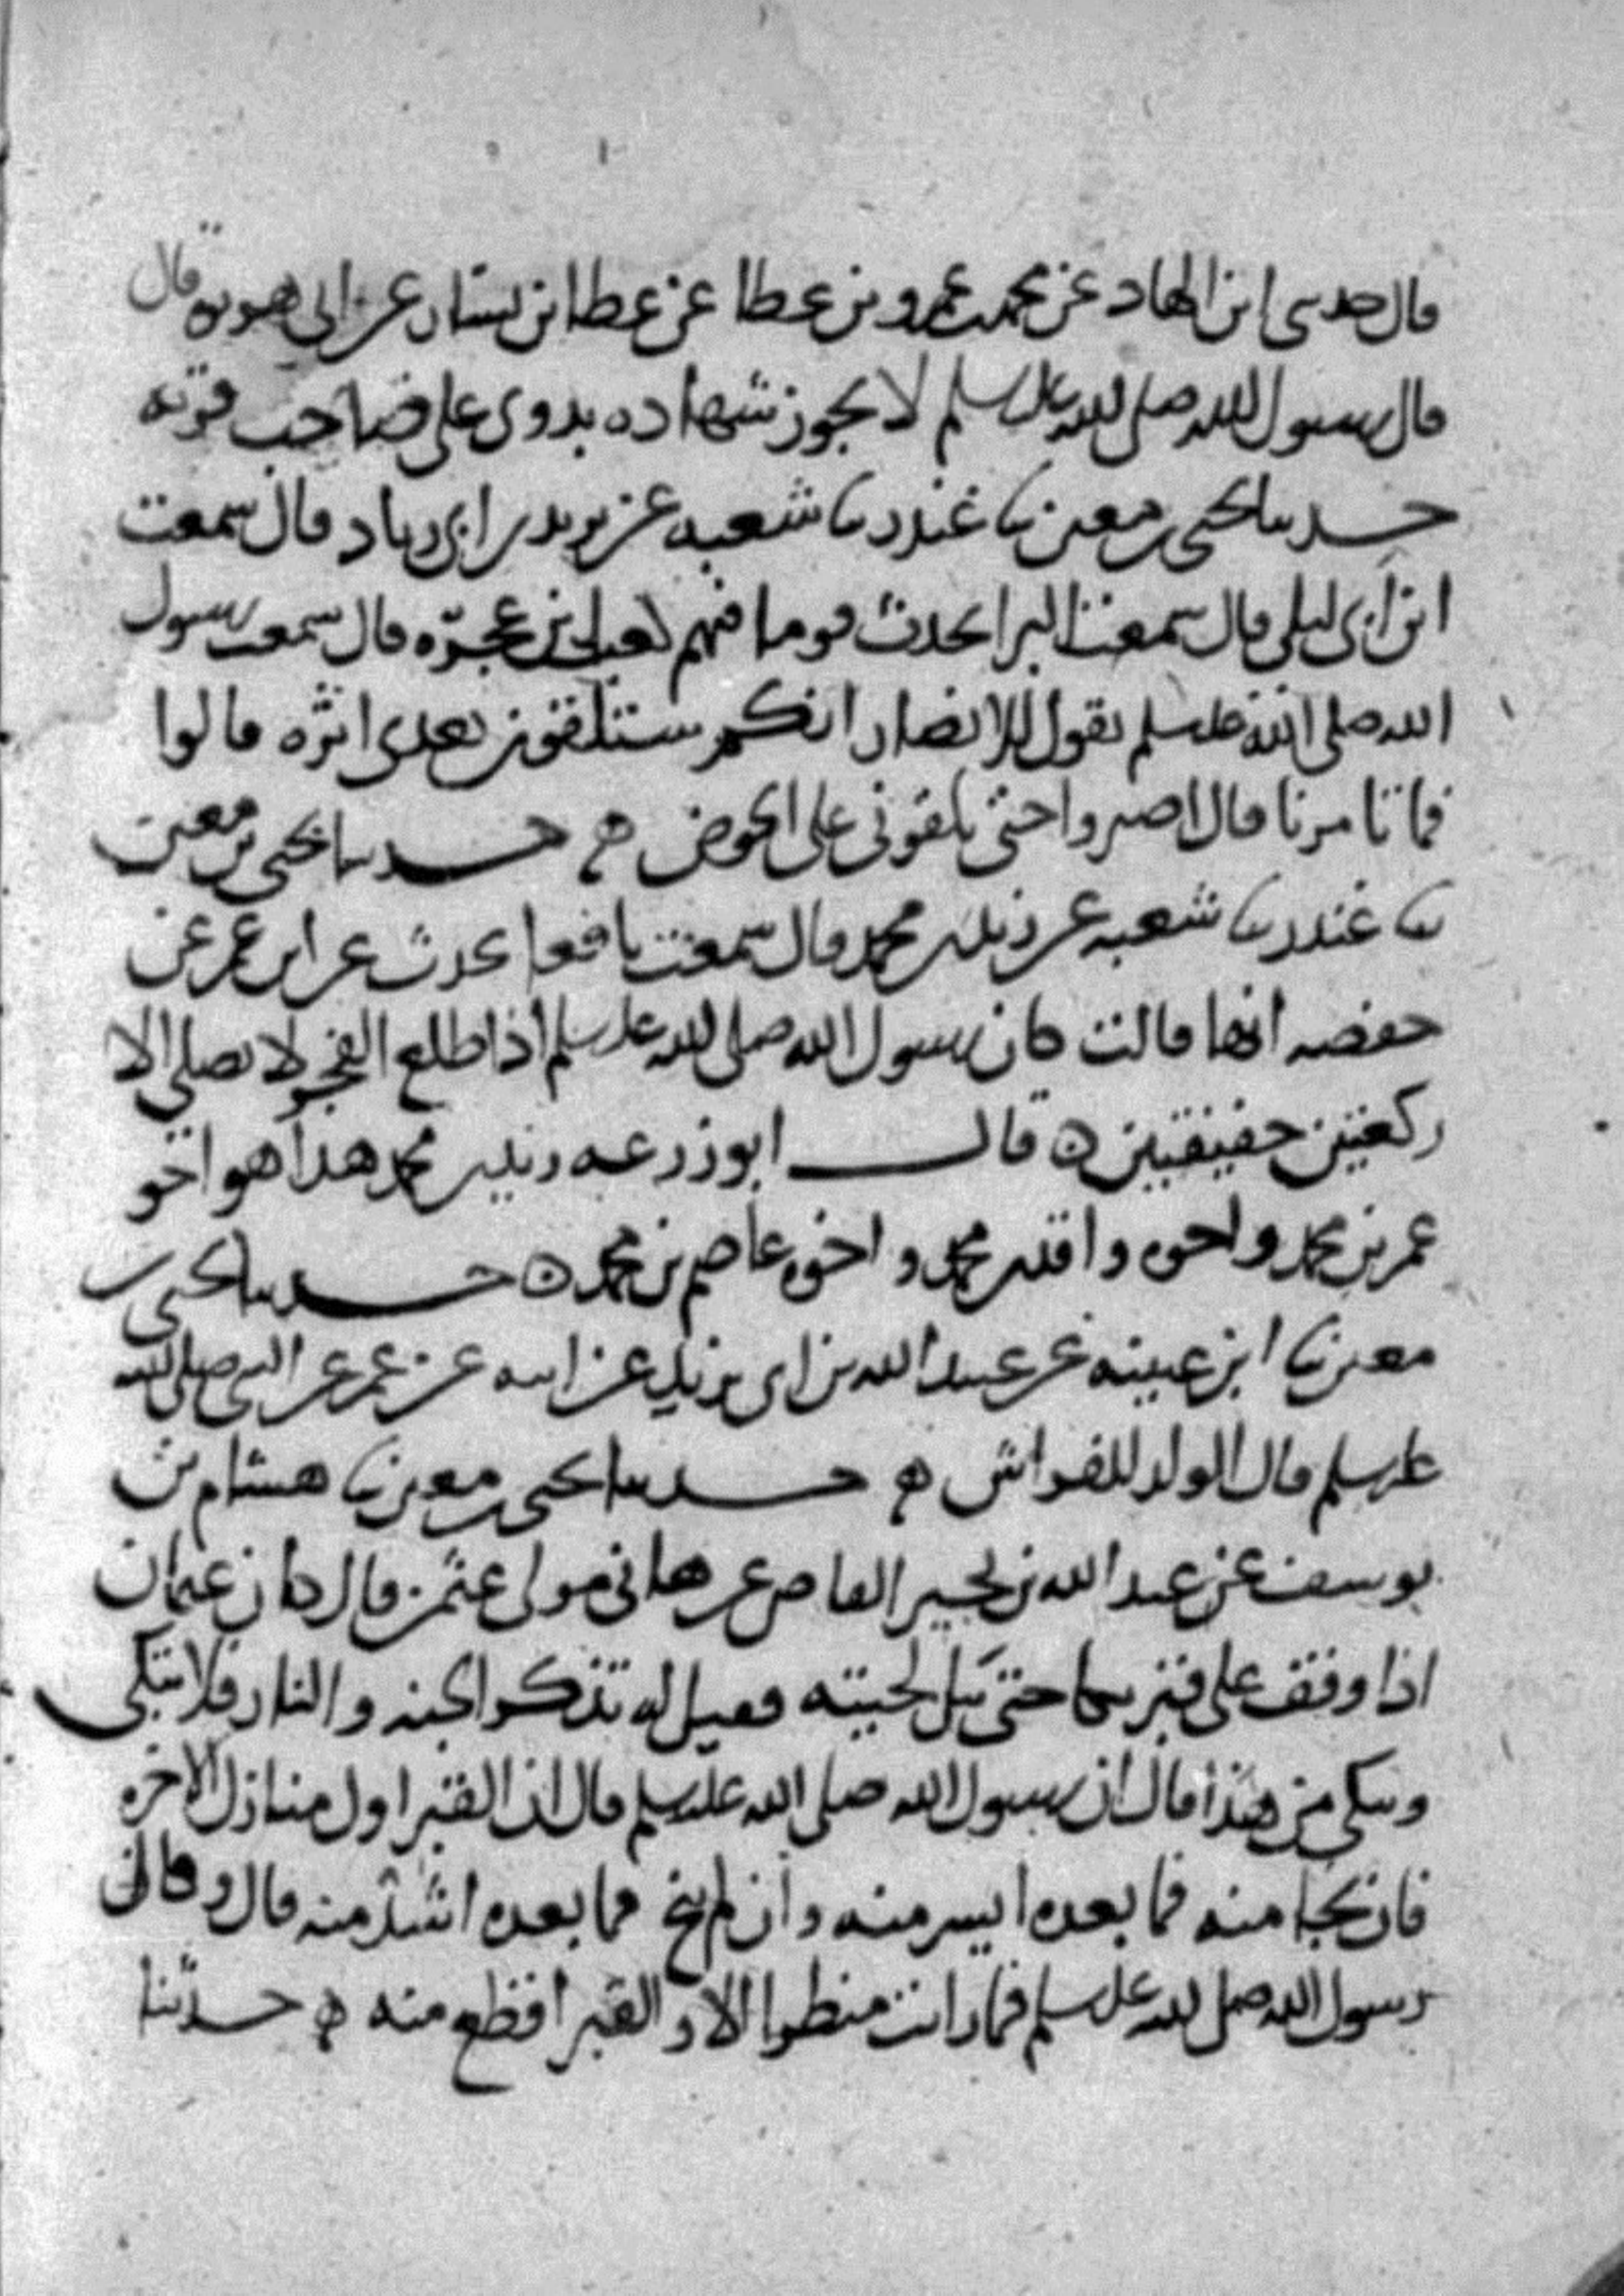 قال حدثني ابن الهاد عن محمد بن عمرو بن عطا عن عطا بن يسار عن ابي هريرة قال
قال رسول الله صلى الله عليه وسلم لا يجوز شهاده بدوي على صاحب قرية
حدثنا يحيى بن معين نا غندر نا شعبه عن يزيد بن ابي زياد قال سمعت
ابن ابي ليلى قال سمعت البرا يحدث قوما فيهم كعب بن عجره قال سمعت رسول
الله صلى الله عليه وسلم يقول للانصار انكم ستلقون بعدي اثره قالوا
فما تامرنا قال اصبروا حتى تلقوني على الحوض ه حدثنا يحيى بن معين
نا غندر نا شعبه عن زيد بن محمد قال سمعت نافعا يحدث عن ابن عمر عن
حفصه انها قالت كان رسول الله صلى الله عليه وسلم اذا طلع الفجر لا يصلي الا
ركعتين خفيفتين ه قال ابو زرعه زيد بن محمد هذا هو اخو
عمر بن محمد واخوه واقد بن محمد واخوه عاصم بن محمد ه حدثنا يحيى بن
معين نا ابن عيينه عن عبيد الله بن ابي يزيد عن ابيه عن عمر عن النبي صلى الله
عليه وسلم قال الولد للفراش ه حدثنا يحيى بن معين نا هشام بن
يوسف عن عبد الله بن بحير القاص عن هاني مولى عثمن قال كان عثمان
اذا وقف على قبر بكا حتى يبل لحيته فقيل له تذكر الجنه والنار فلا تبكي
وتبكي من هذا قال ان رسول الله صلى الله عليه وسلم قال ان القبر اول منازل الاخره
فان نجا منه فما بعده ايسر منه وان لم ينج فما بعده اشد منه قال وقال
رسول الله صلى الله عليه وسلم فما رايت منظرا الا والقبر افظع منه ه حدثنا